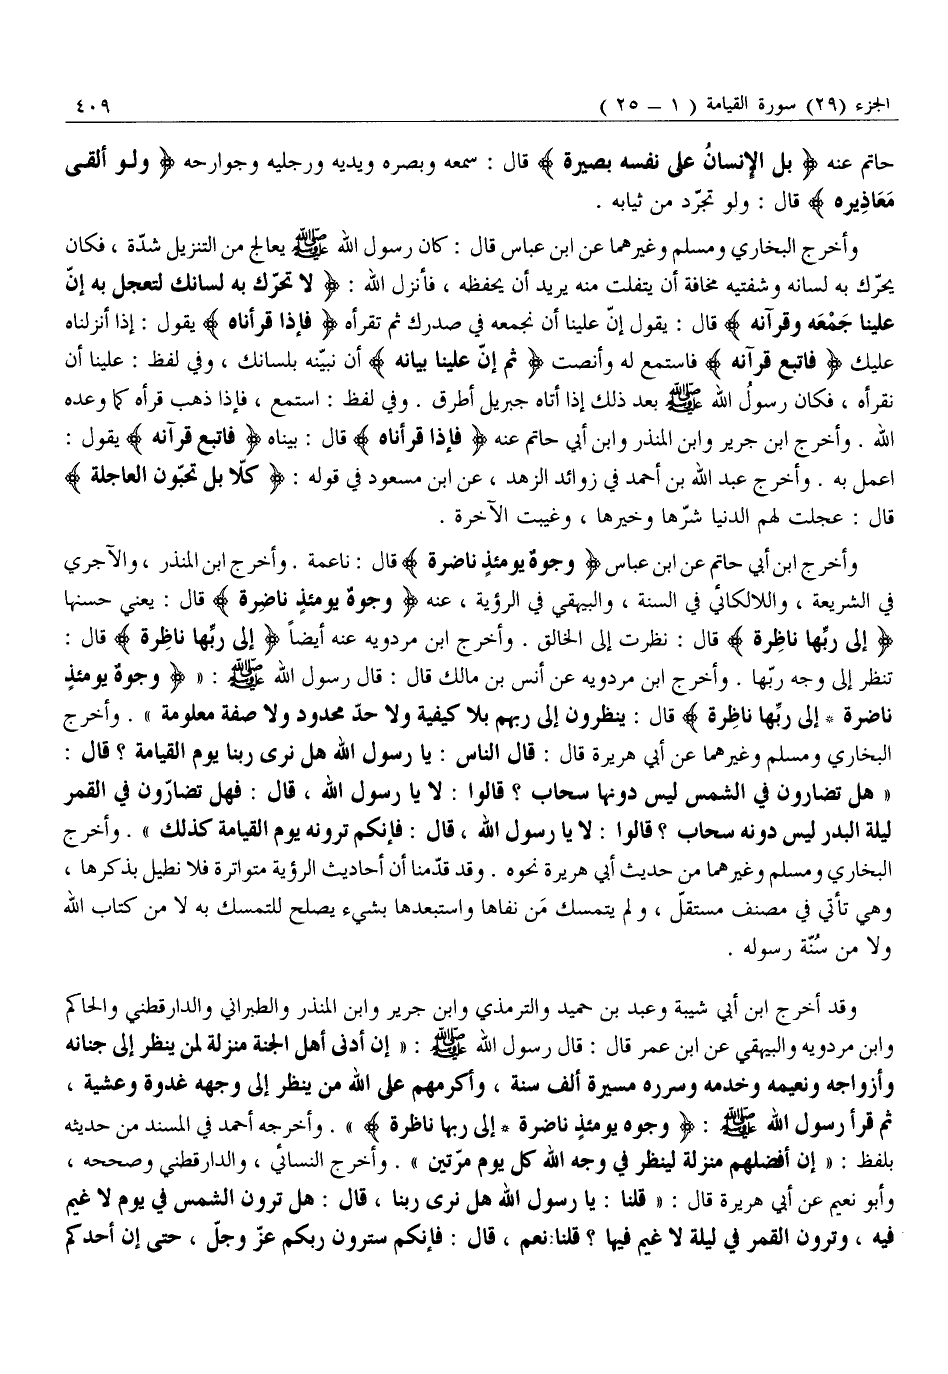 الجزء (٢٩) سورة القيامة ( ١ - ٢٥ ) ٤٠٩
حاتم عنه ﴿ بل الإنسانُ على نفسه بصيرة ﴾ قال : سمعه وبصره ويديه ورجليه وجوارحه ﴿ ولو ألقى
مَعَاذِيره ﴾ قال : ولو تجرّد من ثيابه .
وأخرج البخاري ومسلم وغيرهما عن ابن عباس قال : كان رسول الله ﷺ يعالج من التنزيل شدّة ، فكان
يحرّك به لسانه وشفتيه مخافة أن يتفلت منه يريد أن يحفظه ، فأنزل الله : ﴿ لا تحرّك به لسانك لتعجل به إنّ
علينا جَمْعَه وقرآنه ﴾ قال : يقول إنّ علينا أن نجمعه في صدرك ثم تقرأه ﴿ فإذا قرأناه ﴾ يقول : إذا أنزلناه
عليك ﴿ فاتبع قرآنه ﴾ فاستمع له وأنصت ﴿ ثم إنّ علينا بيانه ﴾ أن نبيّنه بلسانك ، وفي لفظ : علينا أن
نقرأه ، فكان رسولُ الله ﷺ بعد ذلك إذا أتاه جبريل أطرق . وفي لفظ : استمع ، فإذا ذهب قرأه كما وعده
الله . وأخرج ابن جرير وابن المنذر وابن أبي حاتم عنه ﴿ فإذا قرأناه ﴾ قال : بيناه ﴿ فاتبع قرآنه ﴾ يقول :
اعمل به . وأخرج عبد الله بن أحمد في زوائد الزهد ، عن ابن مسعود في قوله : ﴿ كلّا بل تحبّون العاجلة ﴾
قال : عجلت لهم الدنيا شرّها وخيرها ، وغيبت الآخرة .
وأخرج ابن أبي حاتم عن ابن عباس ﴿ وجوهٌ يومئذٍ ناضرة ﴾ قال : ناعمة . وأخرج ابن المنذر ، والآجري
في الشريعة ، واللالكائي في السنة ، والبيهقي في الرؤية ، عنه ﴿ وجوهٌ يومئذٍ ناضِرة ﴾ قال : يعني حسنها
﴿ إلى ربِّها ناظِرة ﴾ قال : نظرت إلى الخالق . وأخرج ابن مردويه عنه أيضاً ﴿ إلى ربِّها ناظِرة ﴾ قال :
تنظر إلى وجه ربّها . وأخرج ابن مردويه عن أنس بن مالك قال : قال رسول الله ﷺ : « ﴿ وجوهٌ يومئذٍ
ناضرة * إلى ربِّها ناظِرة ﴾ قال : ينظرون إلى ربهم بلا كيفية ولا حدّ محدود ولا صفة معلومة » . وأخرج
البخاري ومسلم وغيرهما عن أبي هريرة قال : قال الناس : يا رسول الله هل نرى ربنا يوم القيامة ؟ قال :
« هل تضارون في الشمس ليس دونها سحاب ؟ قالوا : لا يا رسول الله ، قال : فهل تضارّون في القمر
ليلة البدر ليس دونه سحاب ؟ قالوا : لا يا رسول الله ، قال : فإنكم ترونه يوم القيامة كذلك » . وأخرج
البخاري ومسلم وغيرهما من حديث أبي هريرة نحوه . وقد قدّمنا أن أحاديث الرؤية متواترة فلا نطيل بذكرها ،
وهي تأتي في مصنف مستقلّ ، ولم يتمسك مَن نفاها واستبعدها بشيء يصلح للتمسك به لا من كتاب الله
ولا من سُنّة رسوله .
وقد أخرج ابن أبي شيبة وعبد بن حميد والترمذي وابن جرير وابن المنذر والطبراني والدارقطني والحاكم
وابن مردويه والبيهقي عن ابن عمر قال : قال رسول الله ﷺ : « إن أدنى أهل الجنة منزلة لمن ينظر إلى جنانه
وأزواجه ونعيمه وخدمه وسرره مسيرة ألف سنة ، وأكرمهم على الله من ينظر إلى وجهه غدوة وعشية ،
ثم قرأ رسول الله ﷺ : ﴿ وجوه يومئذٍ ناضرة * إلى ربها ناظرة ﴾ » . وأخرجه أحمد في المسند من حديثه
بلفظ : « إن أفضلهم منزلة لينظر في وجه الله كل يوم مرّتين » . وأخرج النسائي ، والدارقطني وصححه ،
وأبو نعيم عن أبي هريرة قال : « قلنا : يا رسول الله هل نرى ربنا ، قال : هل ترون الشمس في يوم لا غيم
فيه ، وترون القمر في ليلة لا غيم فيها ؟ قلنا : نعم ، قال : فإنكم سترون ربكم عزّ وجلّ ، حتى إن أحدكم